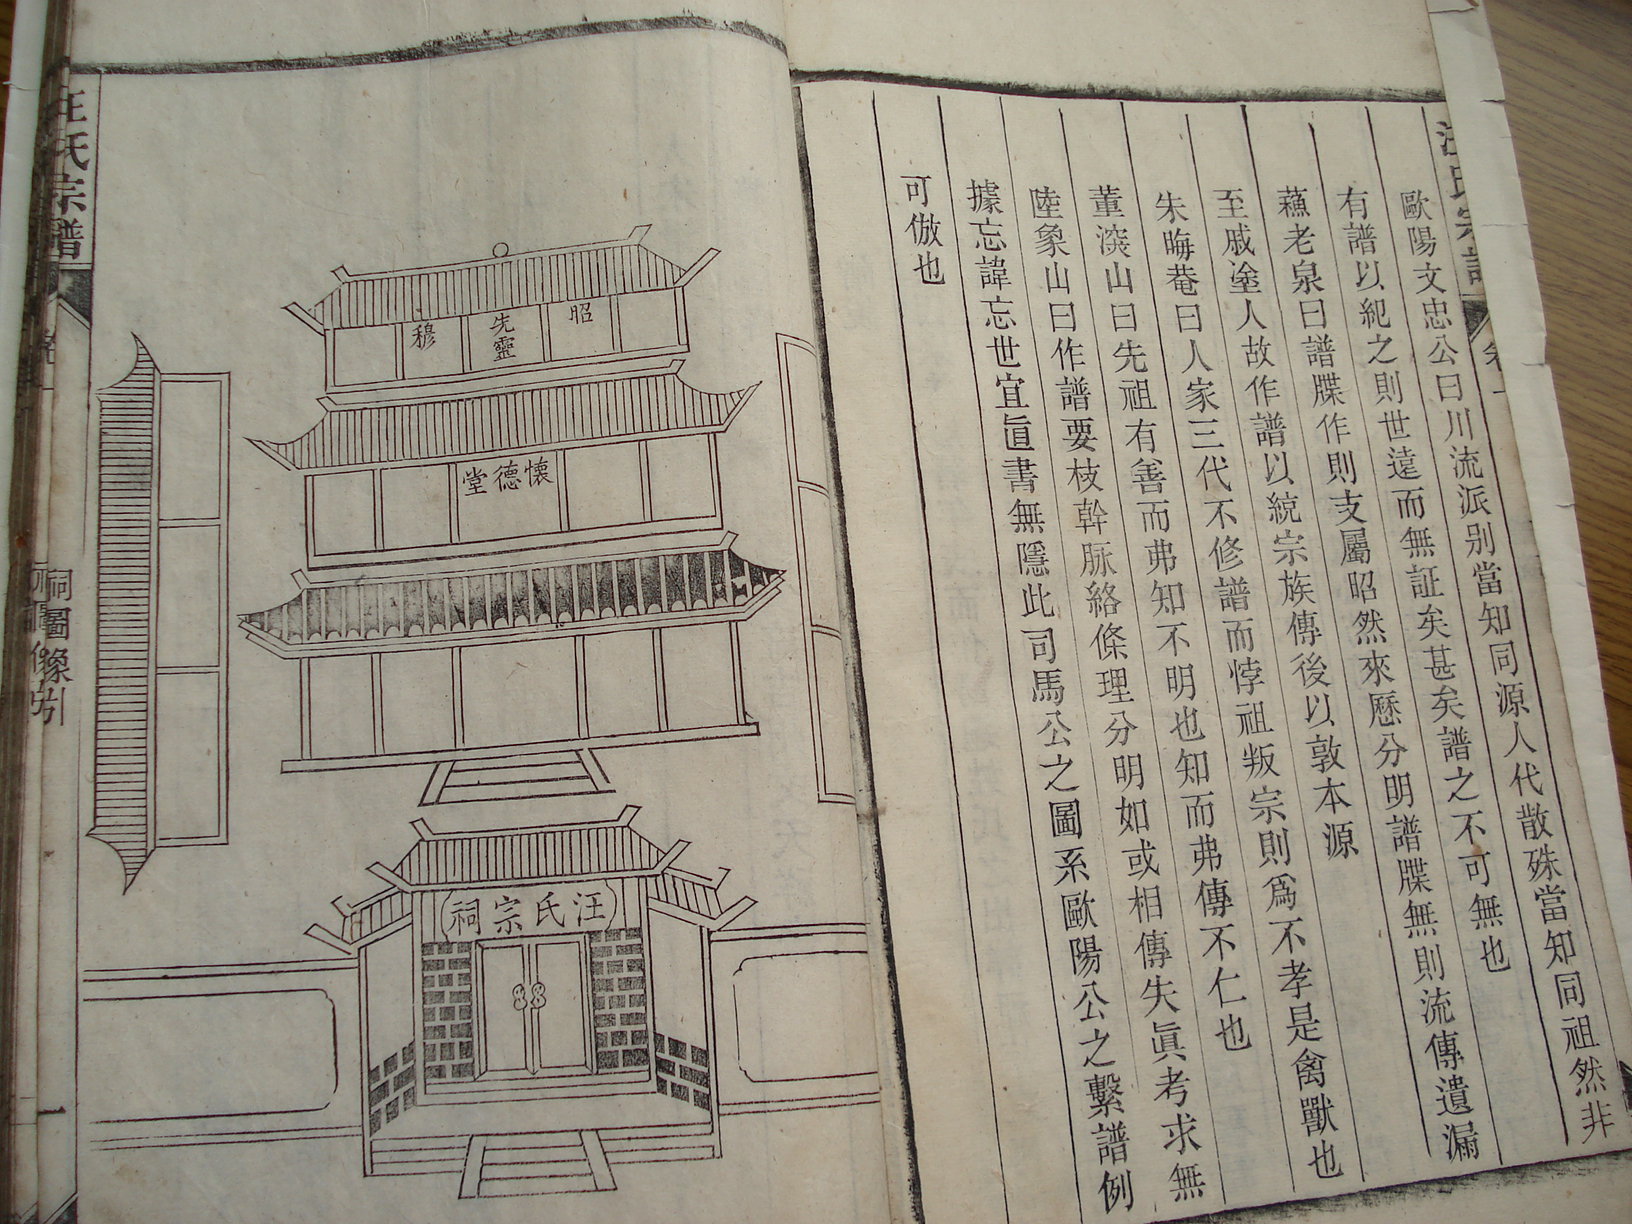 汪氏宗譜
卷一
歐陽文忠公曰川流派别當知同源人代散殊當知同祖然非
有譜以紀之則世遠而無証矣甚矣譜之不可無也
蘓老泉曰譜牒作則支屬昭然來歷分明譜牒無則流傳遺漏
至戚塗人故作譜以統宗族傳後以敦本源
朱晦菴曰人家三代不修譜而悖祖叛宗則爲不孝是禽獸也
董濴山曰先祖有善而弗知不明也知而弗傳不仁也
陸象山曰作譜要枝幹脉絡條理分明如或相傳失眞考求無
據忘諱忘世宜直書無隱此司馬公之圖系歐陽公之繫譜例
可倣也
昭
先靈
穆
懷德堂
汪氏宗祠
汪氏宗譜
祠圖像引
一